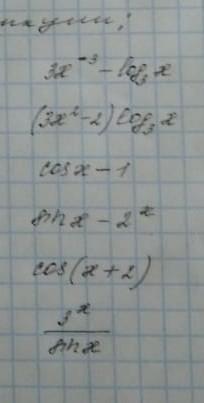 3x⁻³ - log₃ x
(3x² - 2) log₃ x
cos x - 1
sin x - 2ˣ
cos (x + 2)
3ˣ / sin x